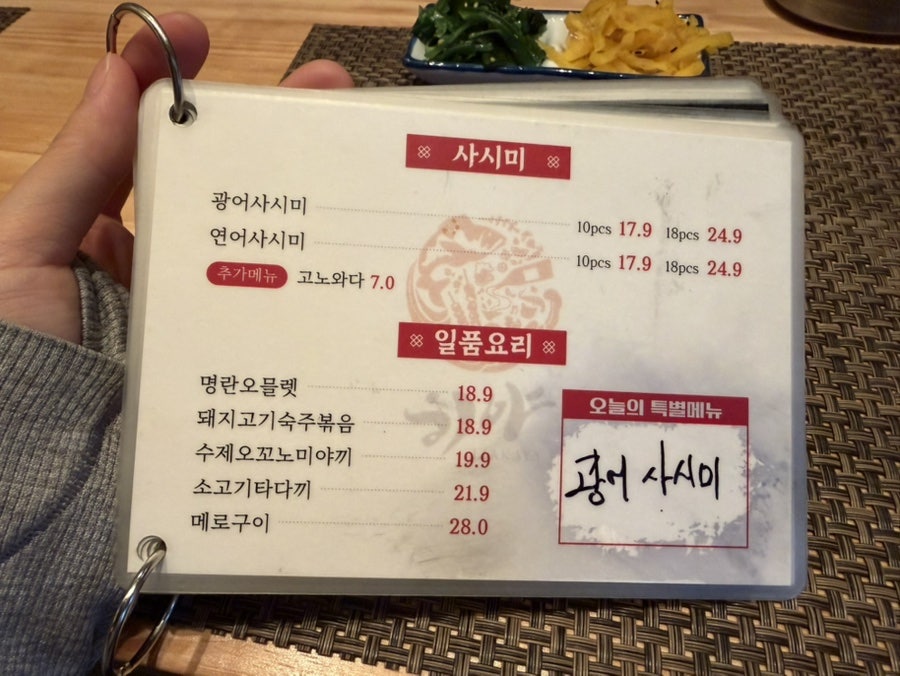 사시미
광어사시미 10pcs 17.9 18pcs 24.9
연어사시미 10pcs 17.9 18pcs 24.9
추가메뉴 고노와다 7.0
일품요리
명란오믈렛 18.9
돼지고기숙주볶음 18.9
수제오꼬노미야끼 19.9
소고기타다끼 21.9
메로구이 28.0
오늘의 특별메뉴
광어 사시미